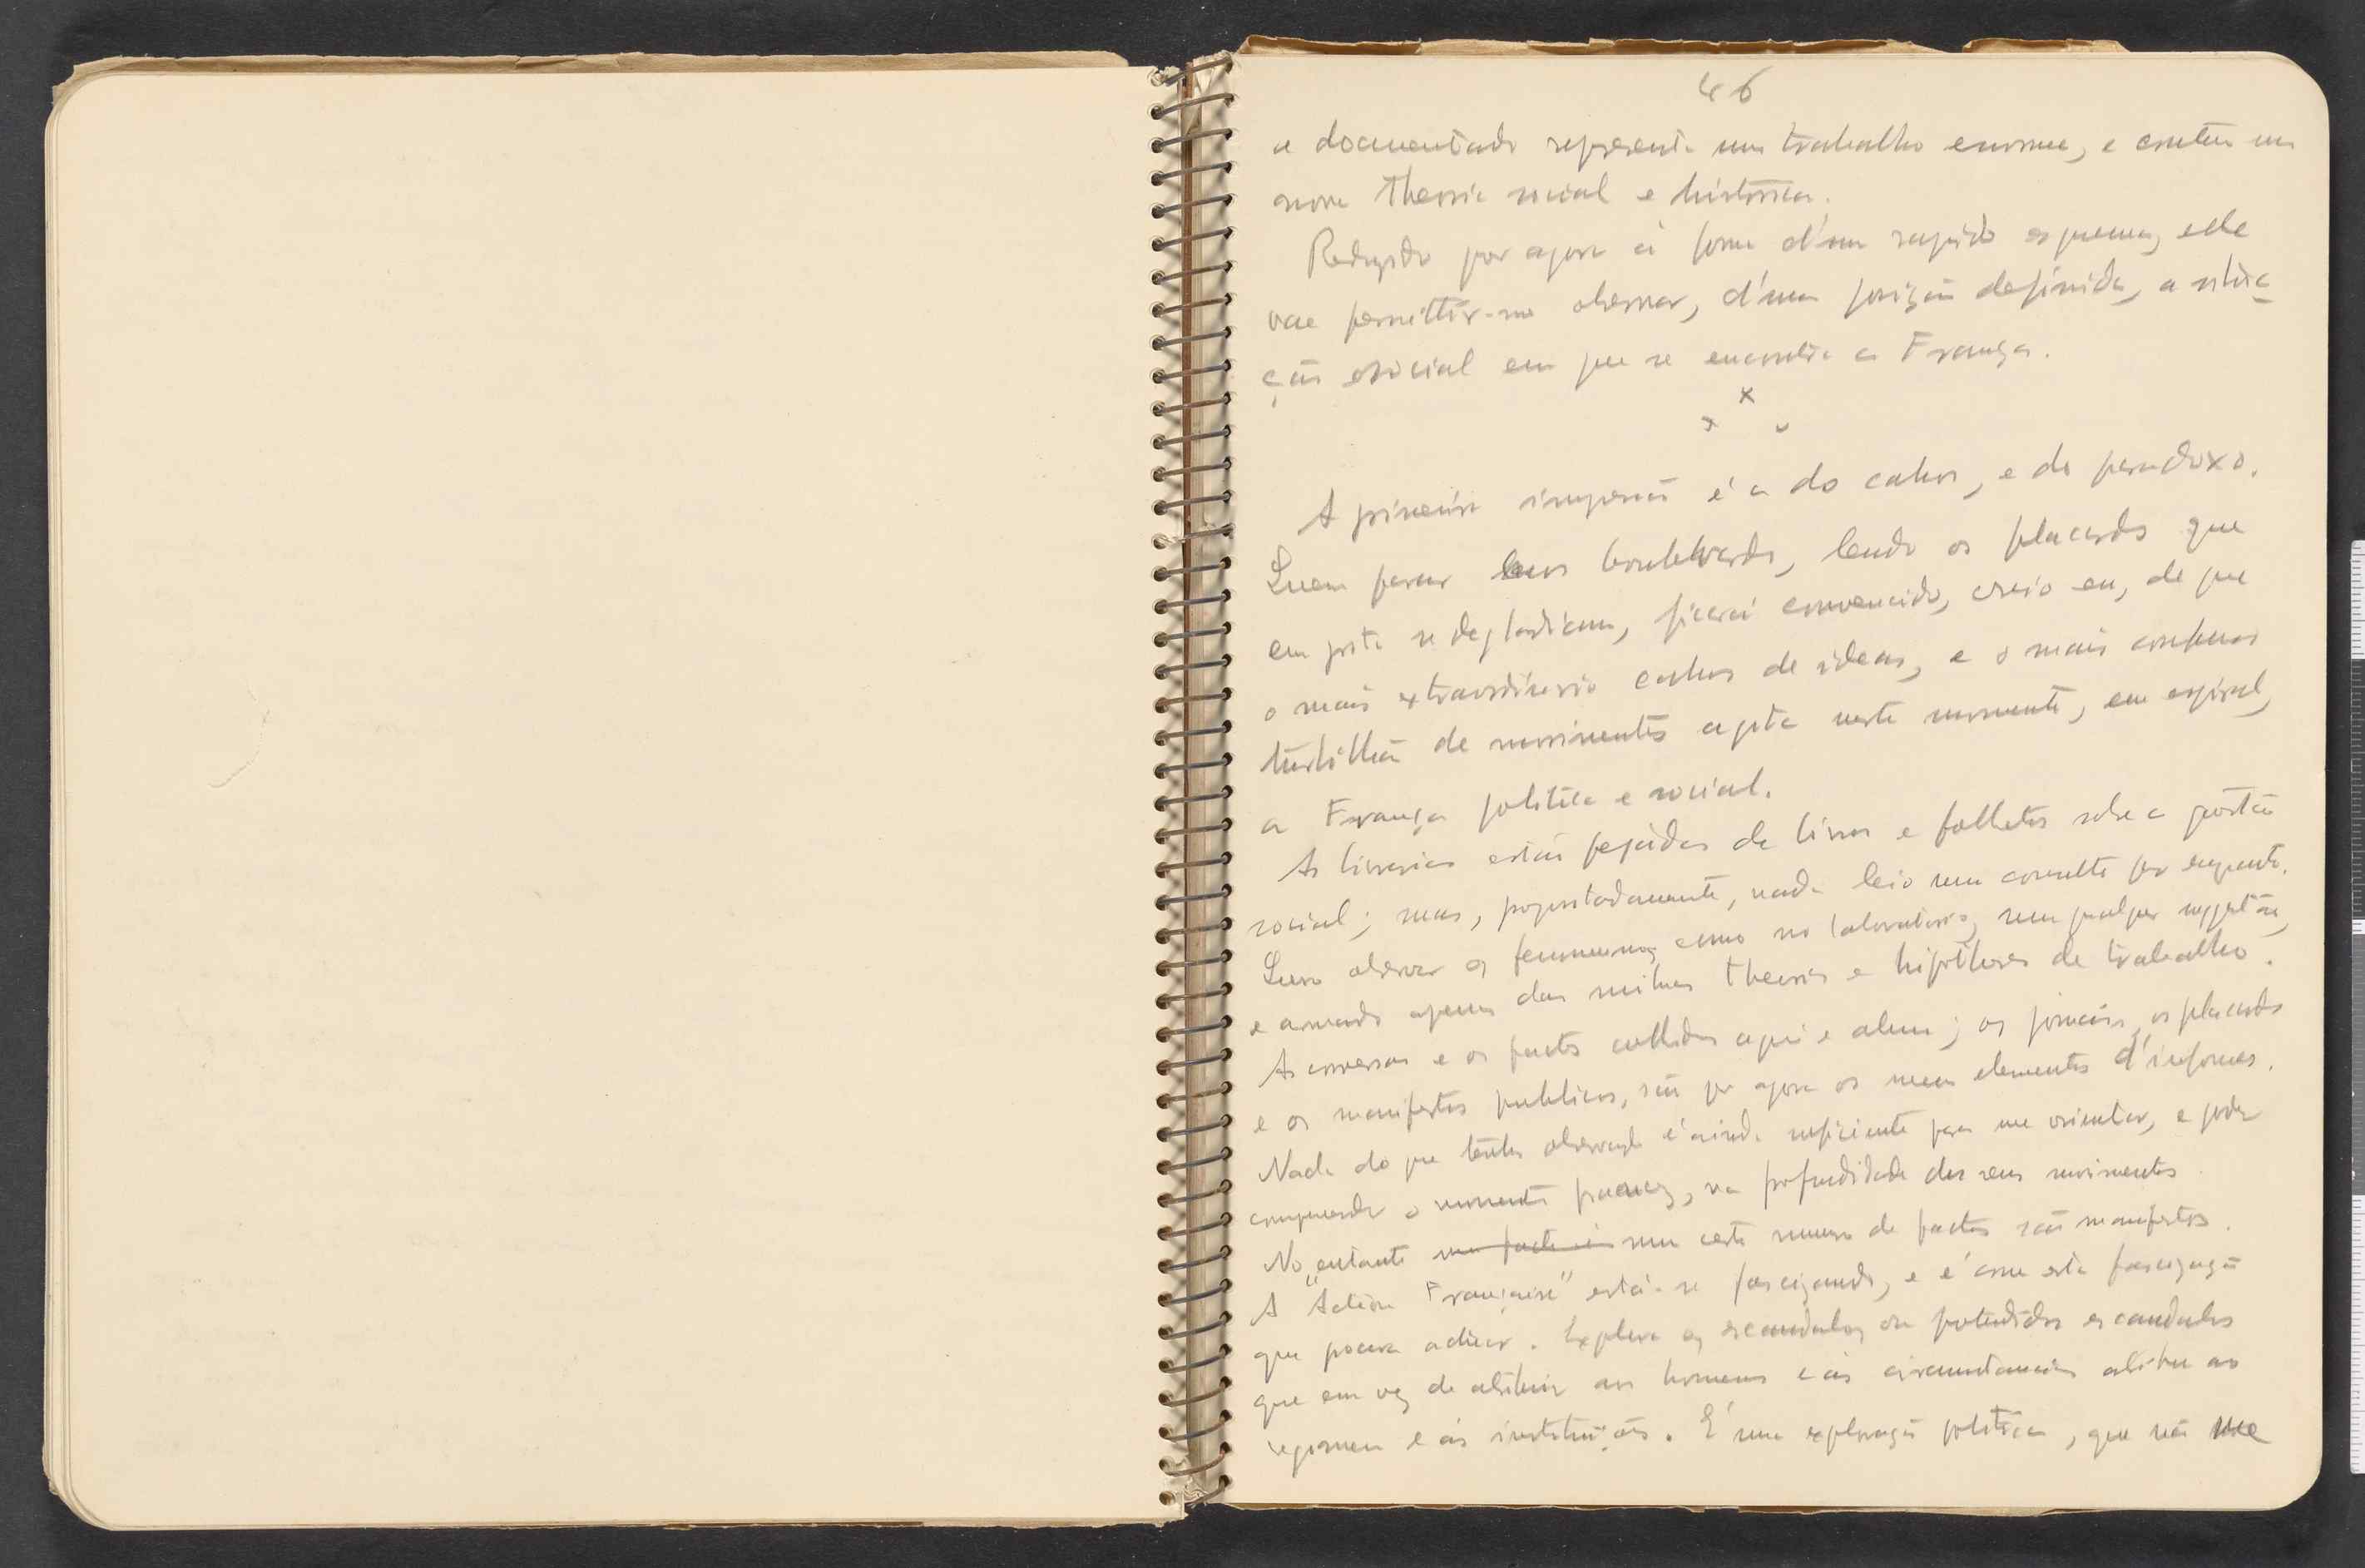 46
e documentado representa um trabalho enorme, e contem um
nova theoria social e historica.
Reduzido por agora á forma d'um rapido esquema, elle
vae permittir-me observar, d'uma posição definida, a situa
ção social em que se encontra a França.
x
x x
A primeira impressão é a do cahos, e do paradoxo.
Quem parar nos boulevards, lendo os placards que
em volta se degladiam, ficará convencido, creio eu, de que
o mais extraordinario cahos de ideas, e o mais confuso
turbilhão de movimentos agita neste momento, em espiral,
a França politica e social.
As livrarias estão pejadas de livros e folhetos sobre a questão
social; mas, propositadamente, nada leio nem consulto por emquanto.
Quero observar os fenomenos, como no laboratorio, sem qualquer suggestão,
e armado apenas das minhas theorias e hipotheses de trabalho.
As conversas e os factos colhidos aqui e alem; os jornais, os placards
e os manifestos publicos, são por agora os meus elementos d'informação.
Nada do que tenho observado é ainda suficiente para me orientar, e poder
comprehender o momento francez, na profundidade dos seus movimentos.
No entanto um facto é um certo numero de factos são manifestos.
A "Action Française" está-se fascizando, e é com esta fascização
que procura actuar. Explora os escandalos ou pretendidos escandalos
que em vez de atribuir aos homens e ás circunstancias atribue ao
regimen e ás instituições. É uma exploração politica, que não me